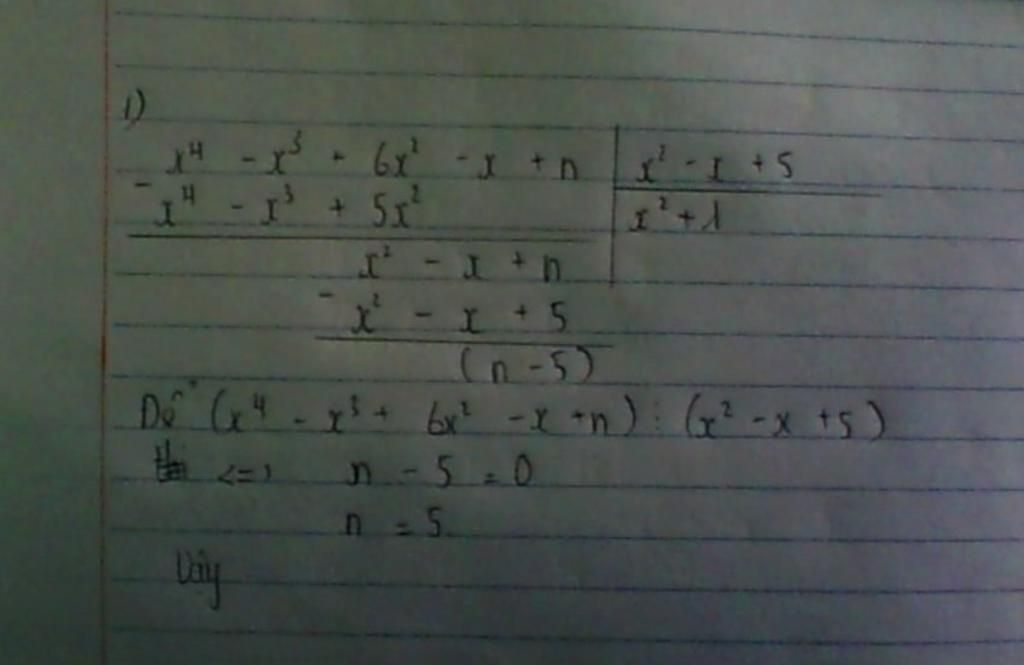 1)
x⁴ - x³ + 6x² - x + n | x² - x + 5
- x⁴ - x³ + 5x² | x² + 1
x² - x + n
- x² - x + 5
(n - 5)
Để (x⁴ - x³ + 6x² - x + n) ⋮ (x² - x + 5)
<=> n - 5 = 0
n = 5
Vậy